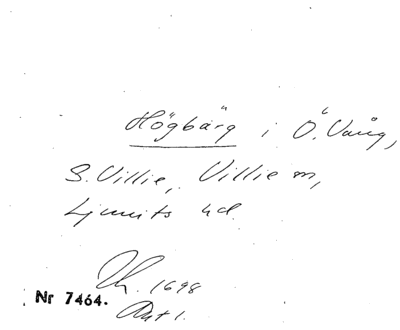 Högbärg i Ö. Vång,
S. Villie, Villie sn,
Ljunits hd.
1698
Nr 7464. Akt 1.